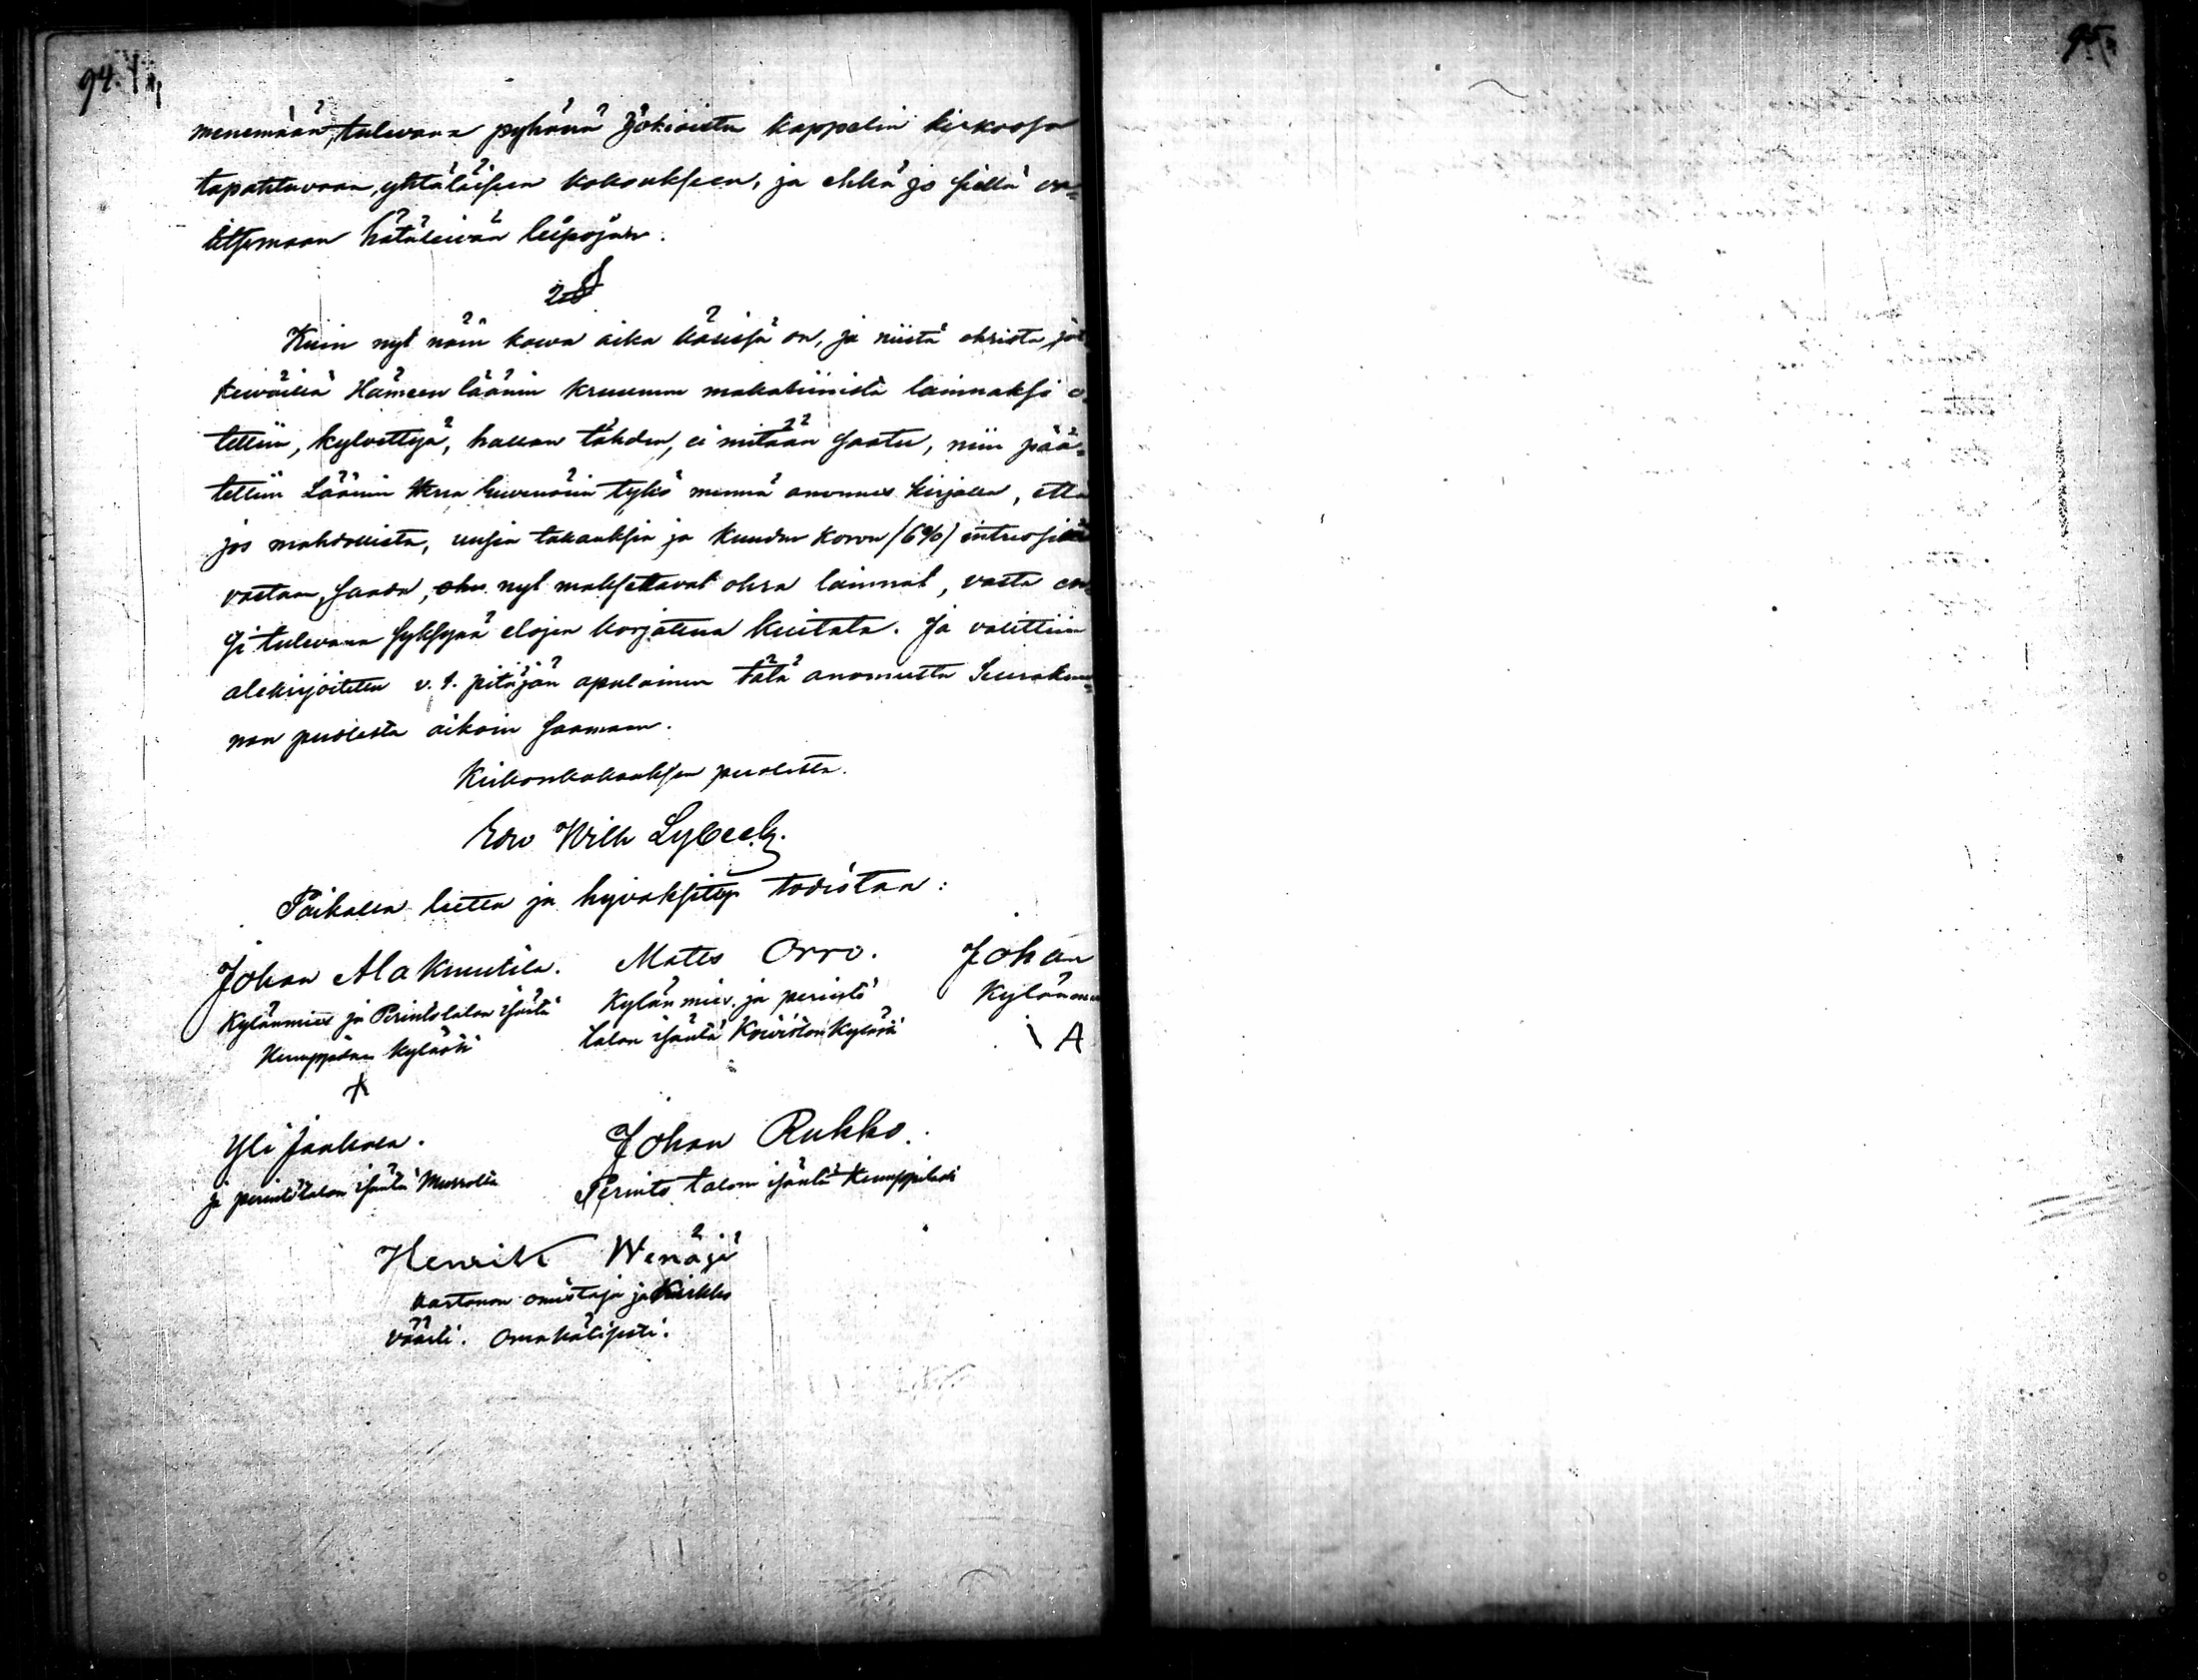 94.
95.
menemään, tulevana pyhänä Jokioisten kappelin kirkossa
tapahtuvaan, yhtäläiseen kokoukseen, ja ehkä jo siellä va=
litsemaan hätäleivän leipojan.
2 §
Kuin nyt näin kowa aika käsissä on, ja niistä ohrista, jot
keväillä Hämeen läänin kruunun makatiinista lainnaksi o
tettiin, kylvettyä, hallan tähden, ei mitään saatu, niin pää=
tettiin Läänin Herra kuvernörin tykö mennä anomus kirjalla, että
jos mahdollista, uusia takauksia ja kuuden korvn /6%/ intressiä
vastaan, saada, nyt maksettavat ohra lainnat, vasta en
si tulevana syksynä elojen korjattua kuitata. Ja valittiin
alekirjoitettu v. t. pitäjän apulainen tätä anomusta Seurakun=
nan puolesta aikoin saamaan.
Kirkonkokouksen puolesta.
Edv Wilh Lybeck.
Paikalla luettu ja hyväksytty todistaa:
Johan Ala Knuutila. Matts Orro. Johan
Kylänmies ja Perintötalon isäntä Kylän mies ja perintö Kylänm
Kumppilan kylästä talon isäntä Koiviston Kylästä
A
Yli Jaakola. Johan Rukko.
ja perintötalon isäntä Murrolta Perintö talon isäntä Kumppilasti
Henrik Wenäjä
kartanon omistaja ja Kirkko
väärti. Omakätisesti.